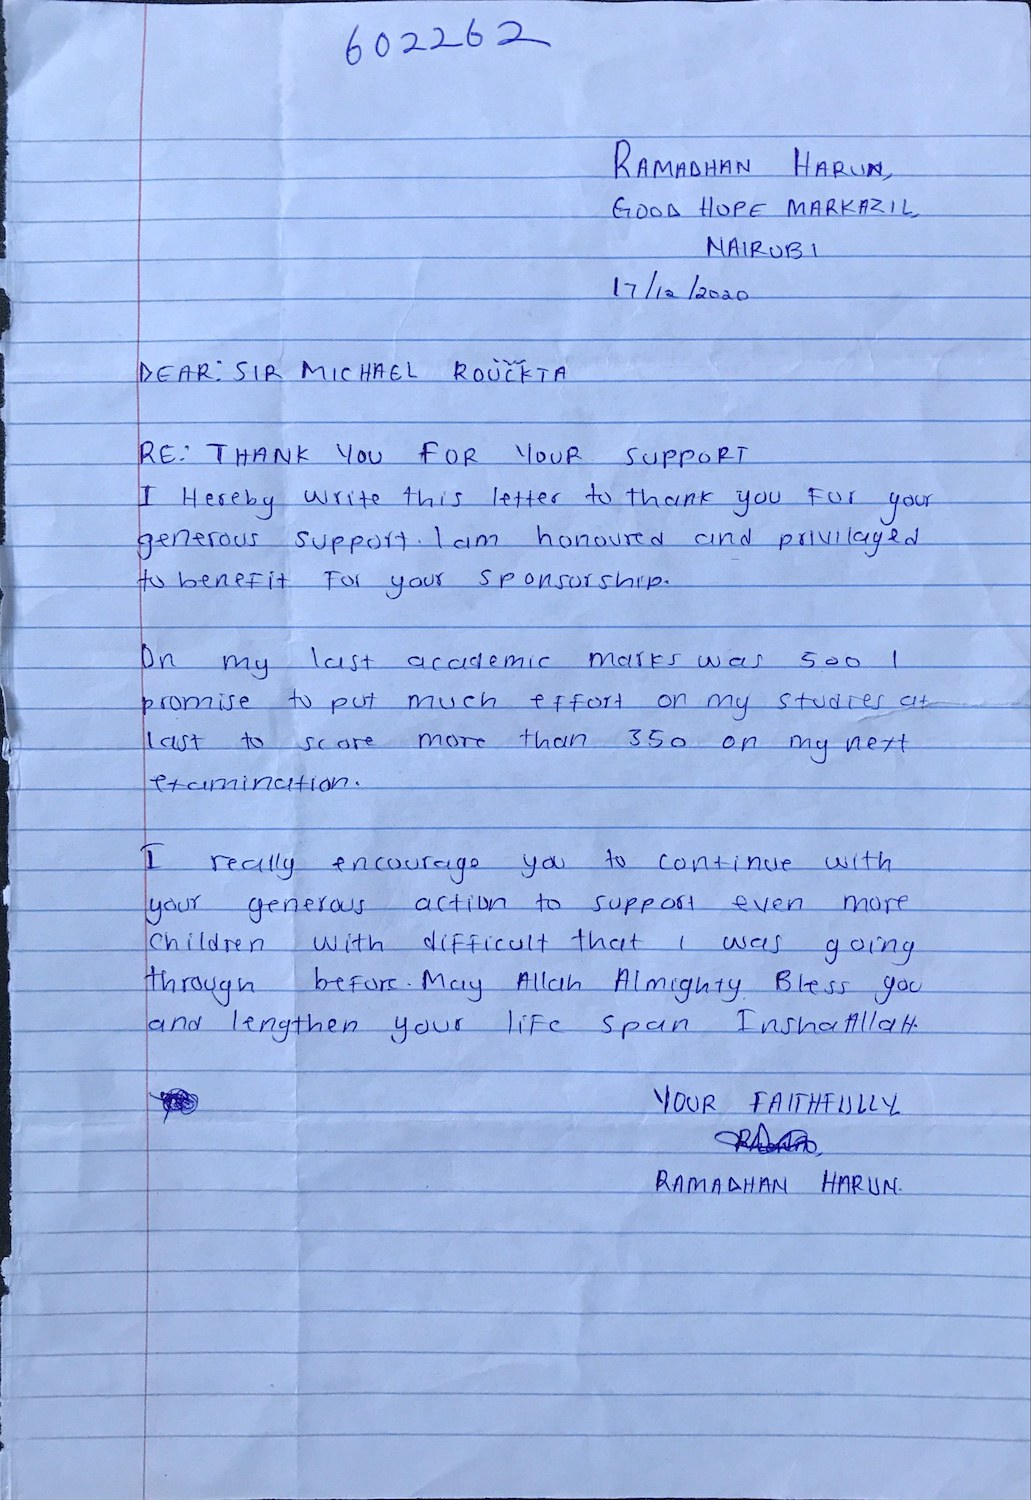 602262
RAMADHAN HARUN,
GOOD HOPE MARKAZIL,
NAIROBI
17/12/2020
DEAR: SIR MICHAEL ROUČKTA
RE: THANK YOU FOR YOUR SUPPORT
I Hereby write this letter to thank you For your
generous support. I am honoured and privilaged
to benefit For your sponsorship.
On my last academic marks was 500 I
promise to put much effort on my studies at
last to score more than 350 on my next
examination.
I really encourage you to continue with
your generous action to support even more
children with difficult that I was going
through before. May Allah Almighty Bless you
and lengthen your life span InshaAllaH.
YOUR FAITHFULLY
RAMADHAN HARUN.